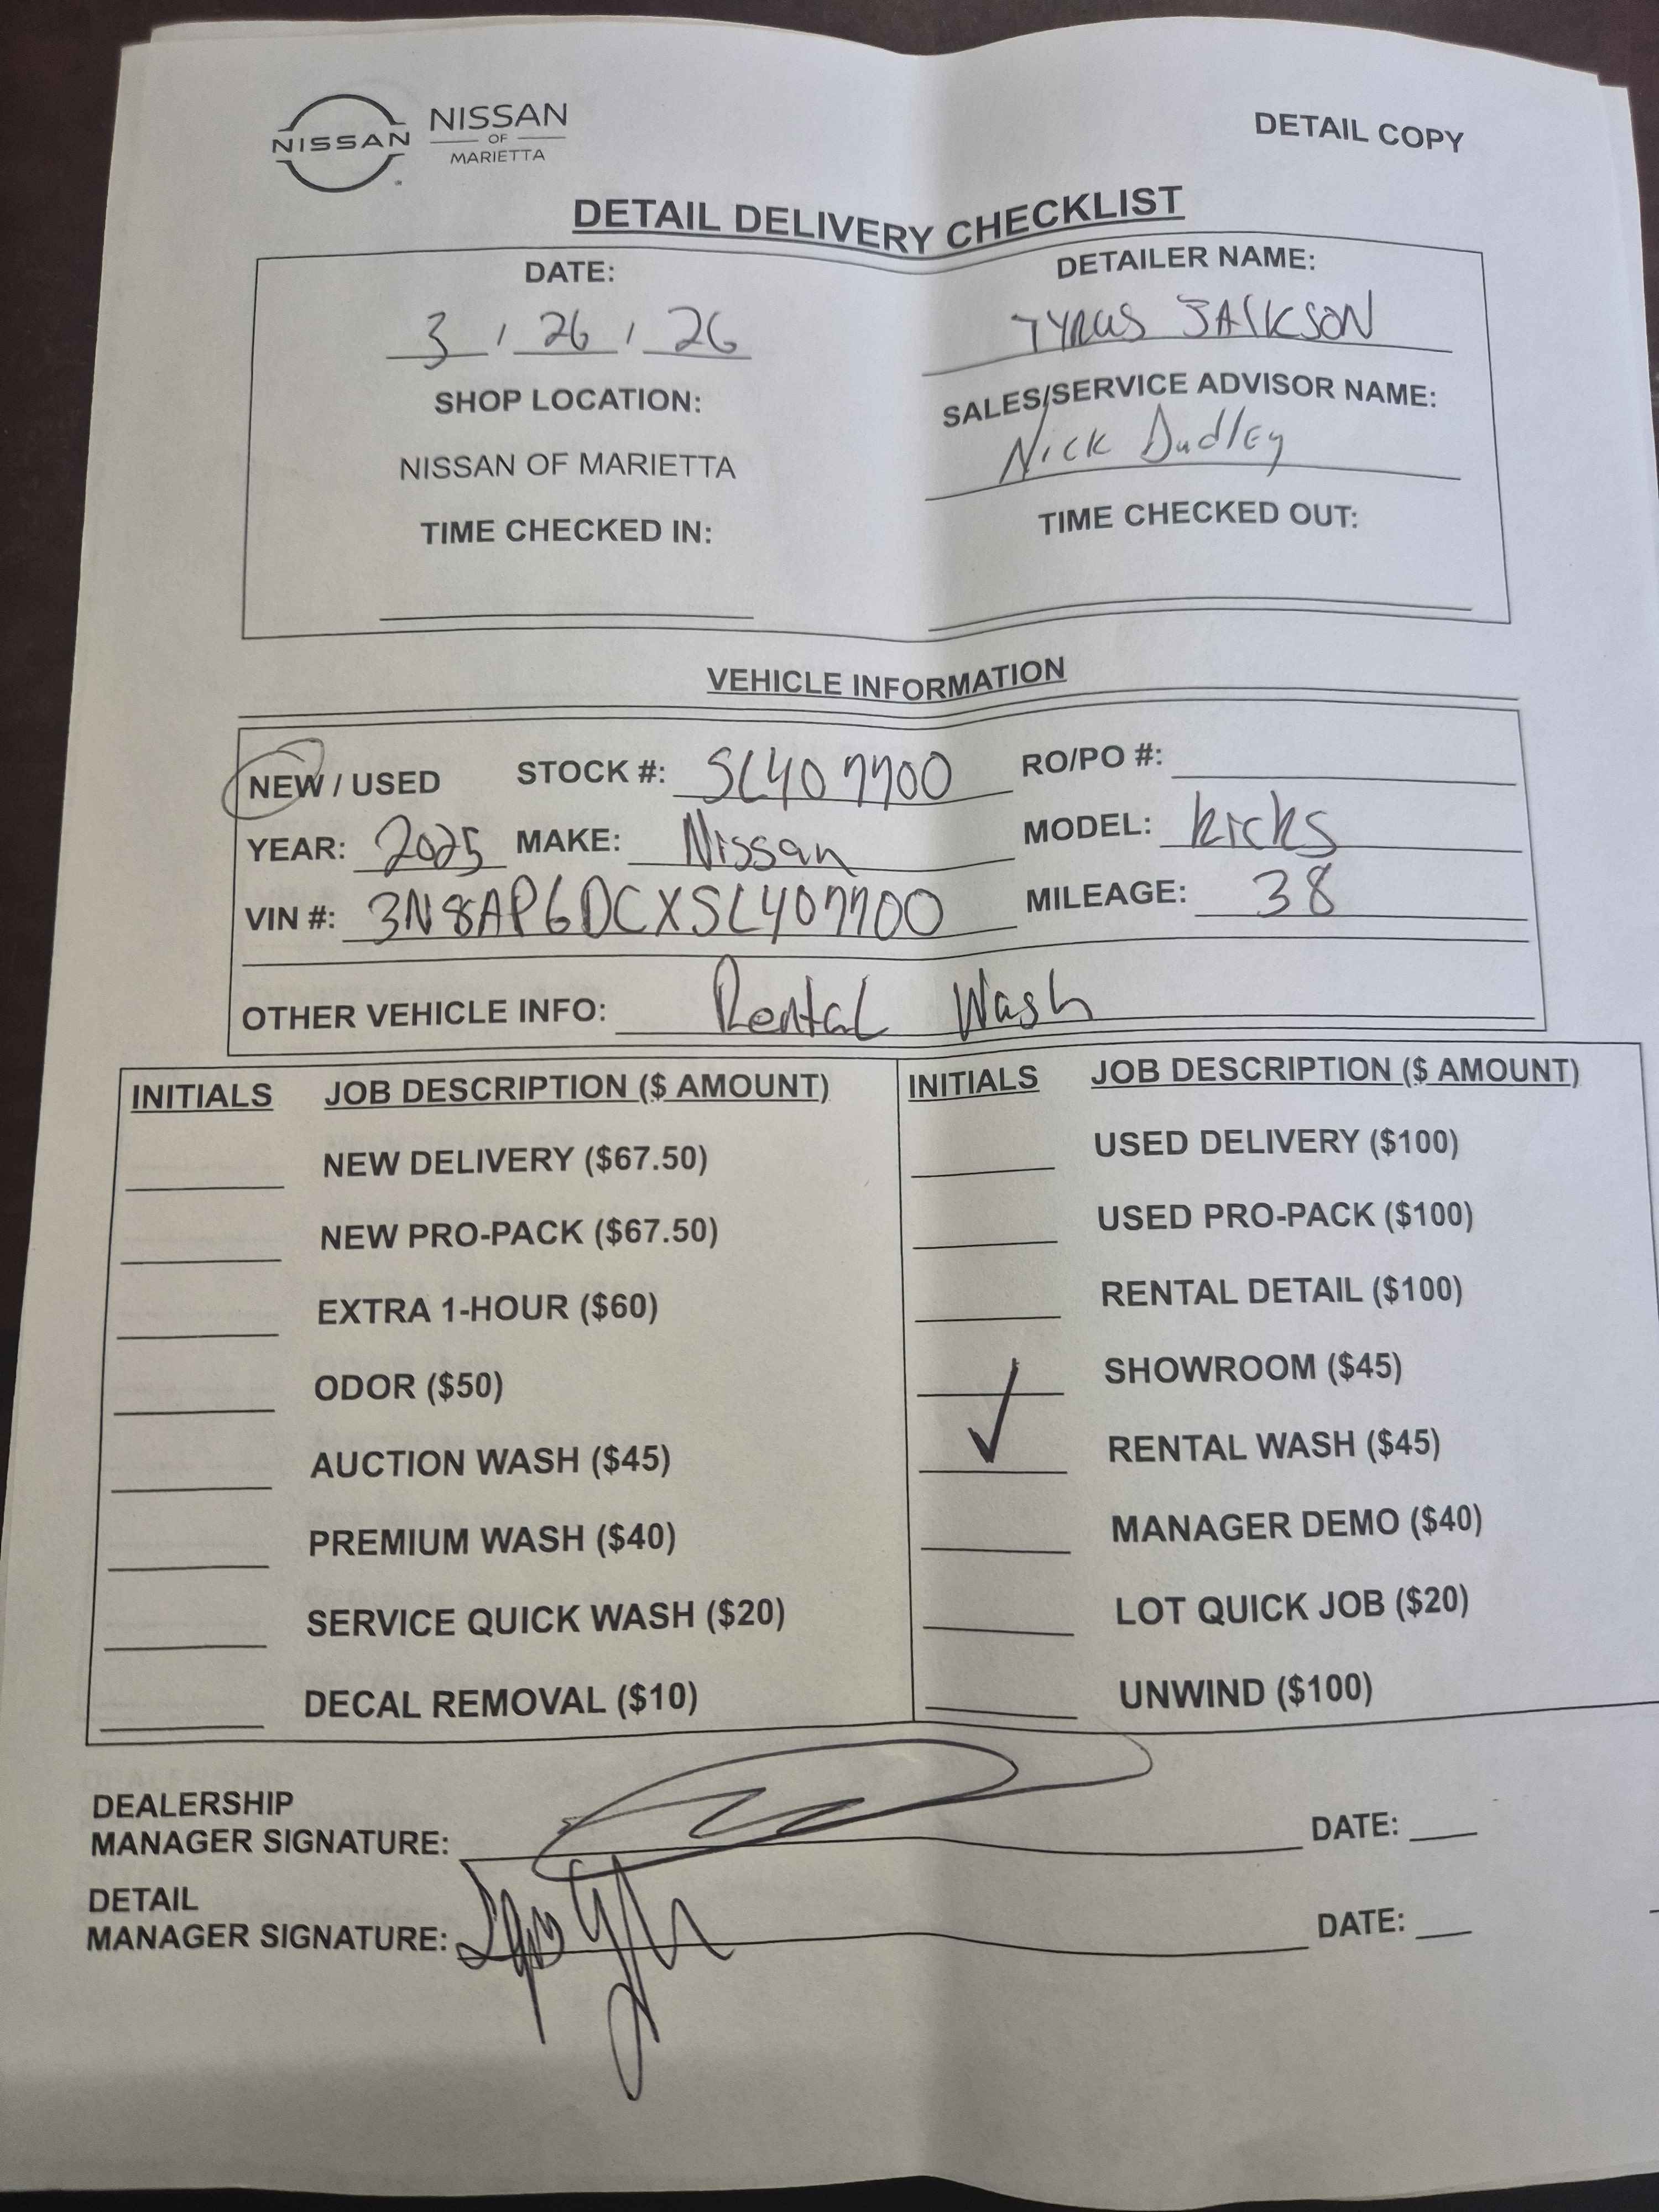 NISSAN
NISSAN
OF
MARIETTA
DETAIL COPY
DETAIL DELIVERY CHECKLIST
DATE:
3 / 26 / 26
DETAILER NAME:
TYRUS JACKSON
SHOP LOCATION:
NISSAN OF MARIETTA
SALES/SERVICE ADVISOR NAME:
Nick Dudley
TIME CHECKED IN:
TIME CHECKED OUT:
VEHICLE INFORMATION
NEW / USED STOCK #: SL407700 RO/PO #:
YEAR: 2025 MAKE: Nissan MODEL: kicks
VIN #: 3N8AP6DCXSL407700 MILEAGE: 38
OTHER VEHICLE INFO: Rental Wash
INITIALS JOB DESCRIPTION ($ AMOUNT)
NEW DELIVERY ($67.50)
NEW PRO-PACK ($67.50)
EXTRA 1-HOUR ($60)
ODOR ($50)
AUCTION WASH ($45)
PREMIUM WASH ($40)
SERVICE QUICK WASH ($20)
DECAL REMOVAL ($10)
INITIALS JOB DESCRIPTION ($ AMOUNT)
USED DELIVERY ($100)
USED PRO-PACK ($100)
RENTAL DETAIL ($100)
SHOWROOM ($45)
✓ RENTAL WASH ($45)
MANAGER DEMO ($40)
LOT QUICK JOB ($20)
UNWIND ($100)
DEALERSHIP
MANAGER SIGNATURE: DATE:
DETAIL
MANAGER SIGNATURE: DATE: